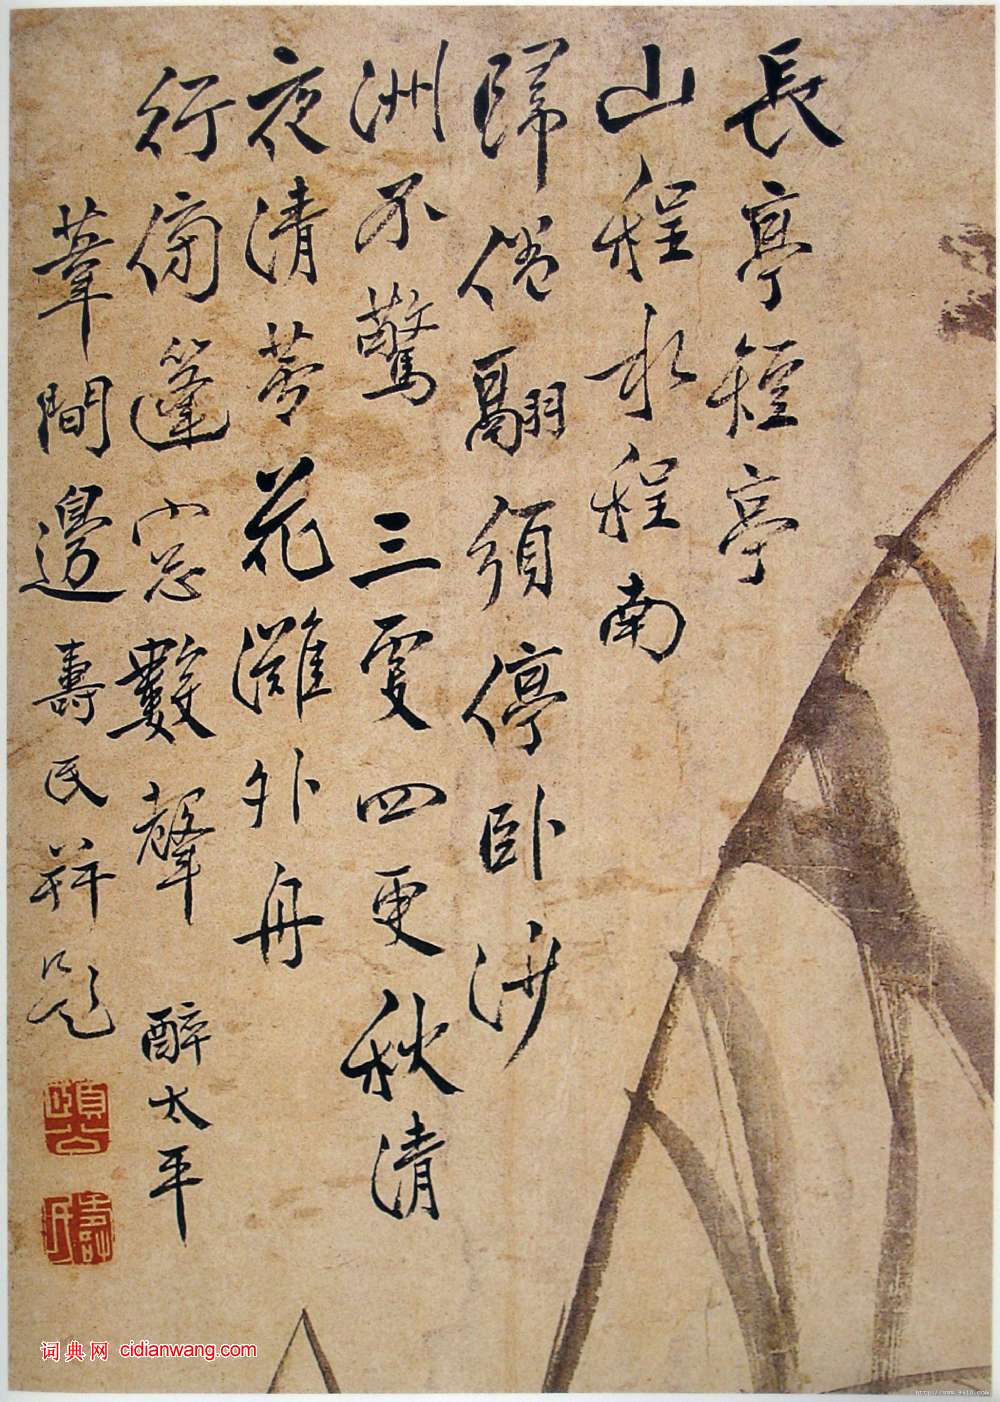 長亭短亭
山程水程南
歸倦翮須停卧沙
洲不驚三更四更秋清
夜清蓼花灘外舟
行傍篷窓數聲 醉太平
葦間邊壽民并題
頤公
壽民
词典网 cidianwang.com